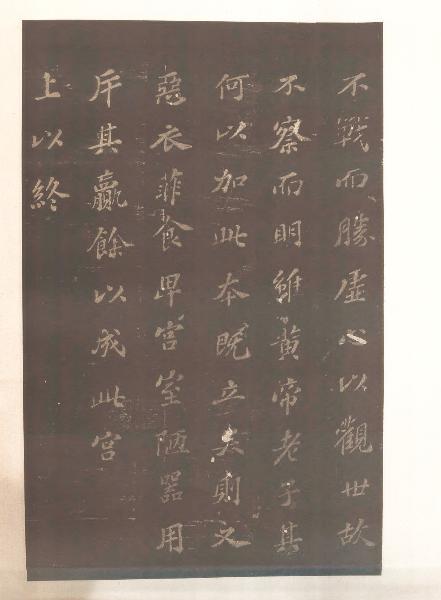 不戰而勝虛心以觀世故
不察而明雖黃帝老子其
何以加此本既立矣則又
惡衣菲食卑宮室陋器用
斥其贏餘以成此宮
上以終